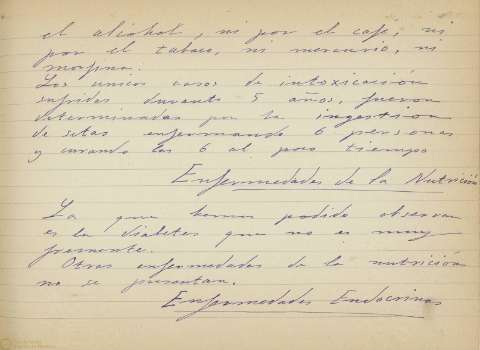 el alcohol, ni por el cafe, ni
por el tabaco, ni mercurio, ni
morfina.
Los unicos casos de intoxicación
sufridos durante 5 años, fueron
determinadas por la ingestion
de setas enfermando 6 personas
y curando las 6 al poco tiempo
Enfermedades de la Nutrición
La que hemos podido observar
es la diabetes que no es muy
fremente.
Otras enfermedades de la nutrición
no se presentan.
Enfermedades Endocrinas